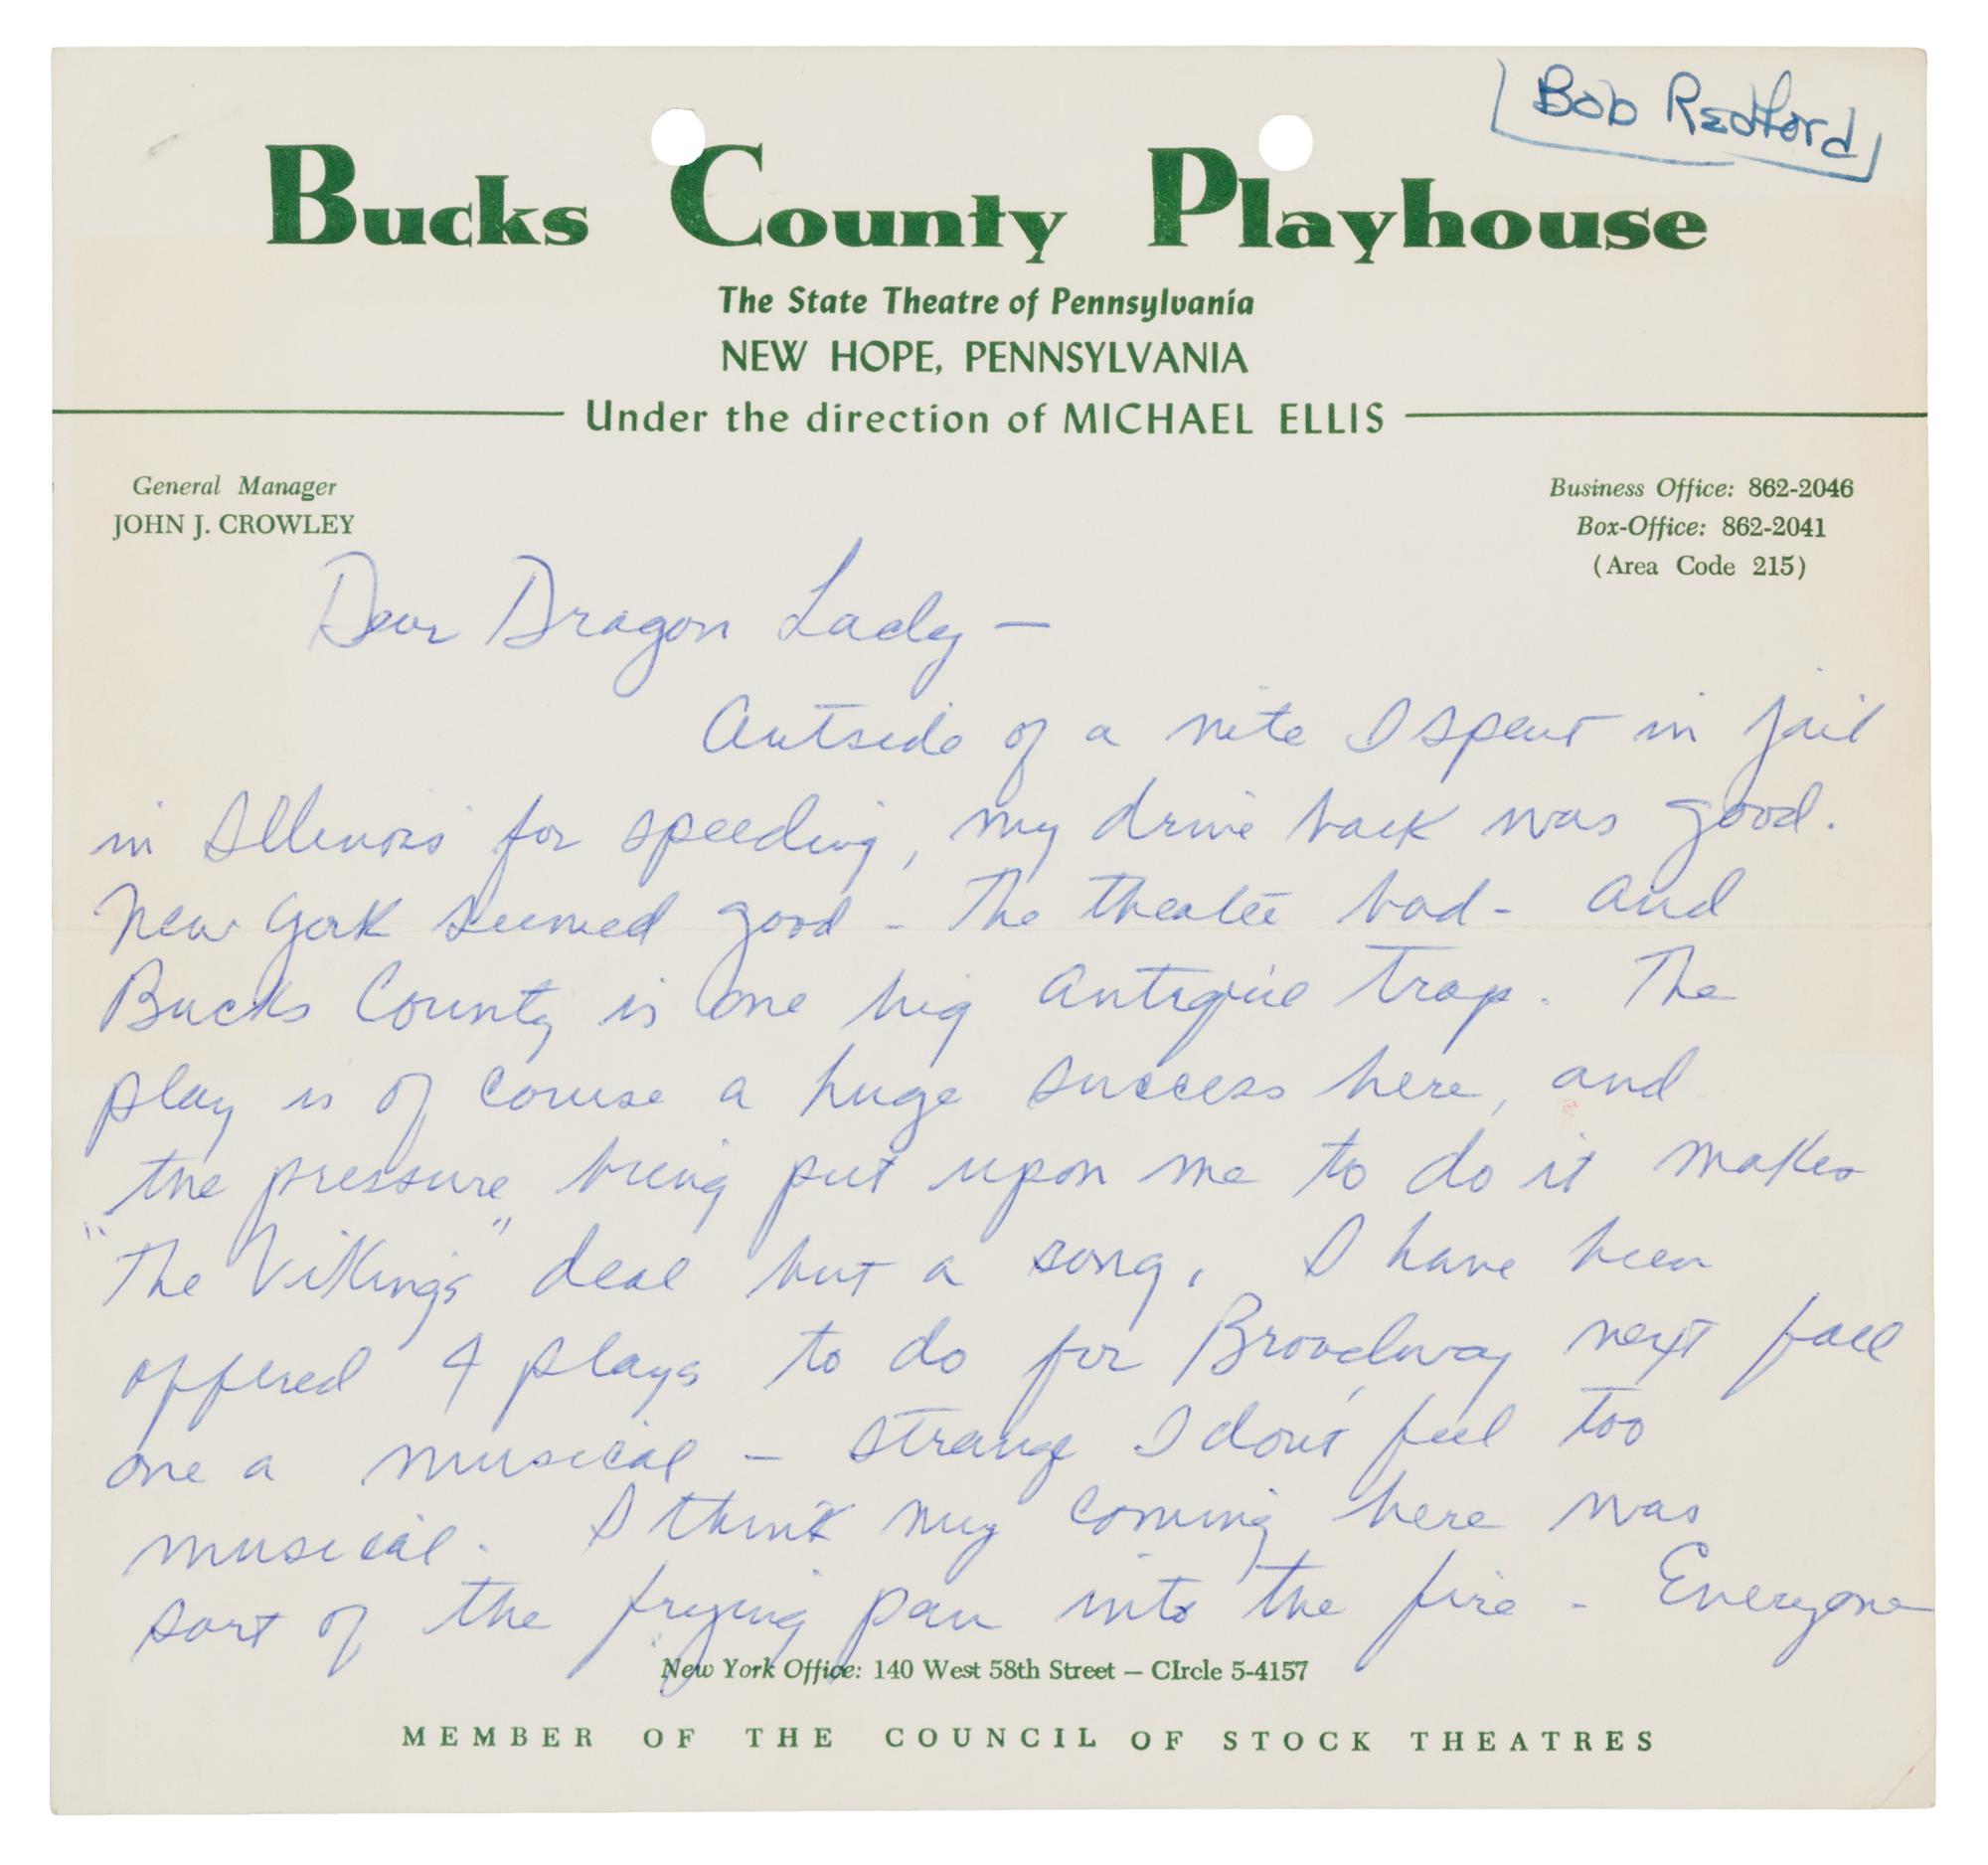 Bob Redford
Bucks County Playhouse
The State Theatre of Pennsylvania
NEW HOPE, PENNSYLVANIA
Under the direction of MICHAEL ELLIS
General Manager
JOHN J. CROWLEY
Business Office: 862-2046
Box-Office: 862-2041
(Area Code 215)
Dear Dragon Lady —
Outside of a nite I spent in jail
in Illinois for speeding, my drive back was good.
New York seemed good - The theatre bad - and
Bucks County is one big antique trap. The
play is of course a huge success here, and
the pressure being put upon me to do it makes
"The Vikings" deal but a song. I have been
offered 4 plays to do for Broadway next fall
one a musical — strange I dont feel too
musical. I think my coming here was
sort of the frying pan into the fire - Everyone
New York Office: 140 West 58th Street — CIrcle 5-4157
MEMBER OF THE COUNCIL OF STOCK THEATRES